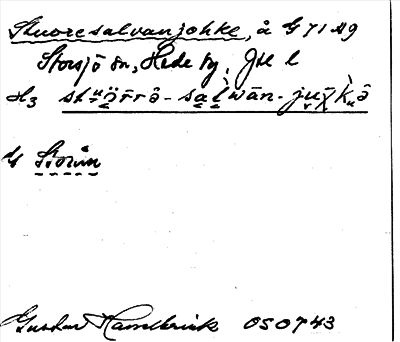 Stuoresalvanjohke, å G 71 A9
Storsjö sn, Hede tg, Jtl l
H3 stŭŏrrə̑-sal̀wān-juχ̄k̀ə̑
Storån
Gustav Hasselbrink 050743